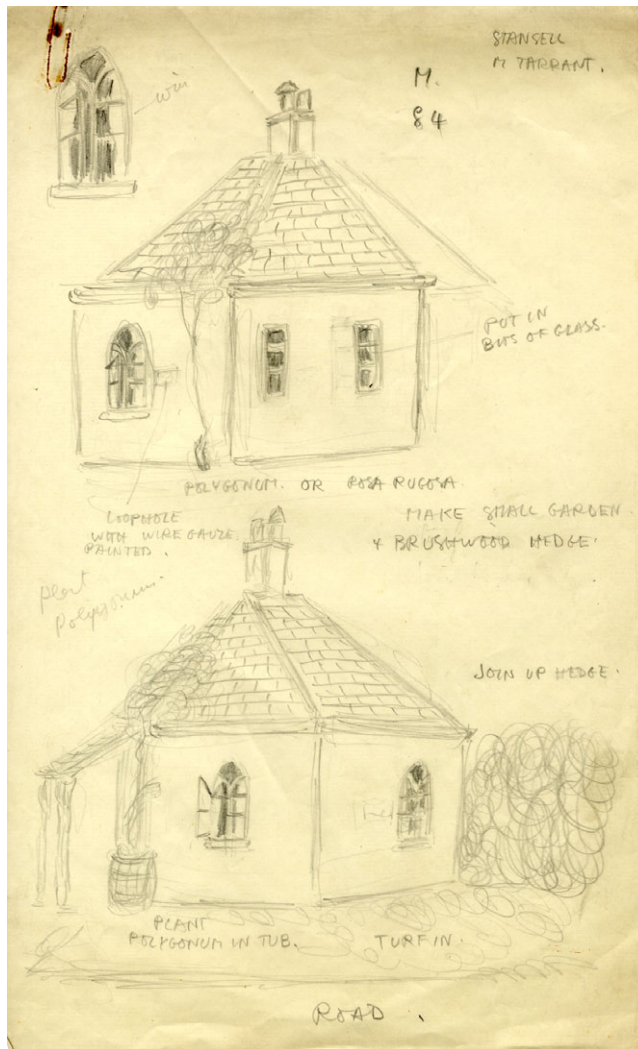 STANSELL
M TARRANT.
M.
84
win
PUT IN
BITS OF GLASS.
POLYGONUM. OR ROSA RUGOSA
LOOPHOLE
WITH WIRE GAUZE
PAINTED.
MAKE SMALL GARDEN
+ BRUSHWOOD HEDGE.
plant
Polygonum.
JOIN UP HEDGE.
PLANT
POLYGONUM IN TUB.
TURF IN.
ROAD.